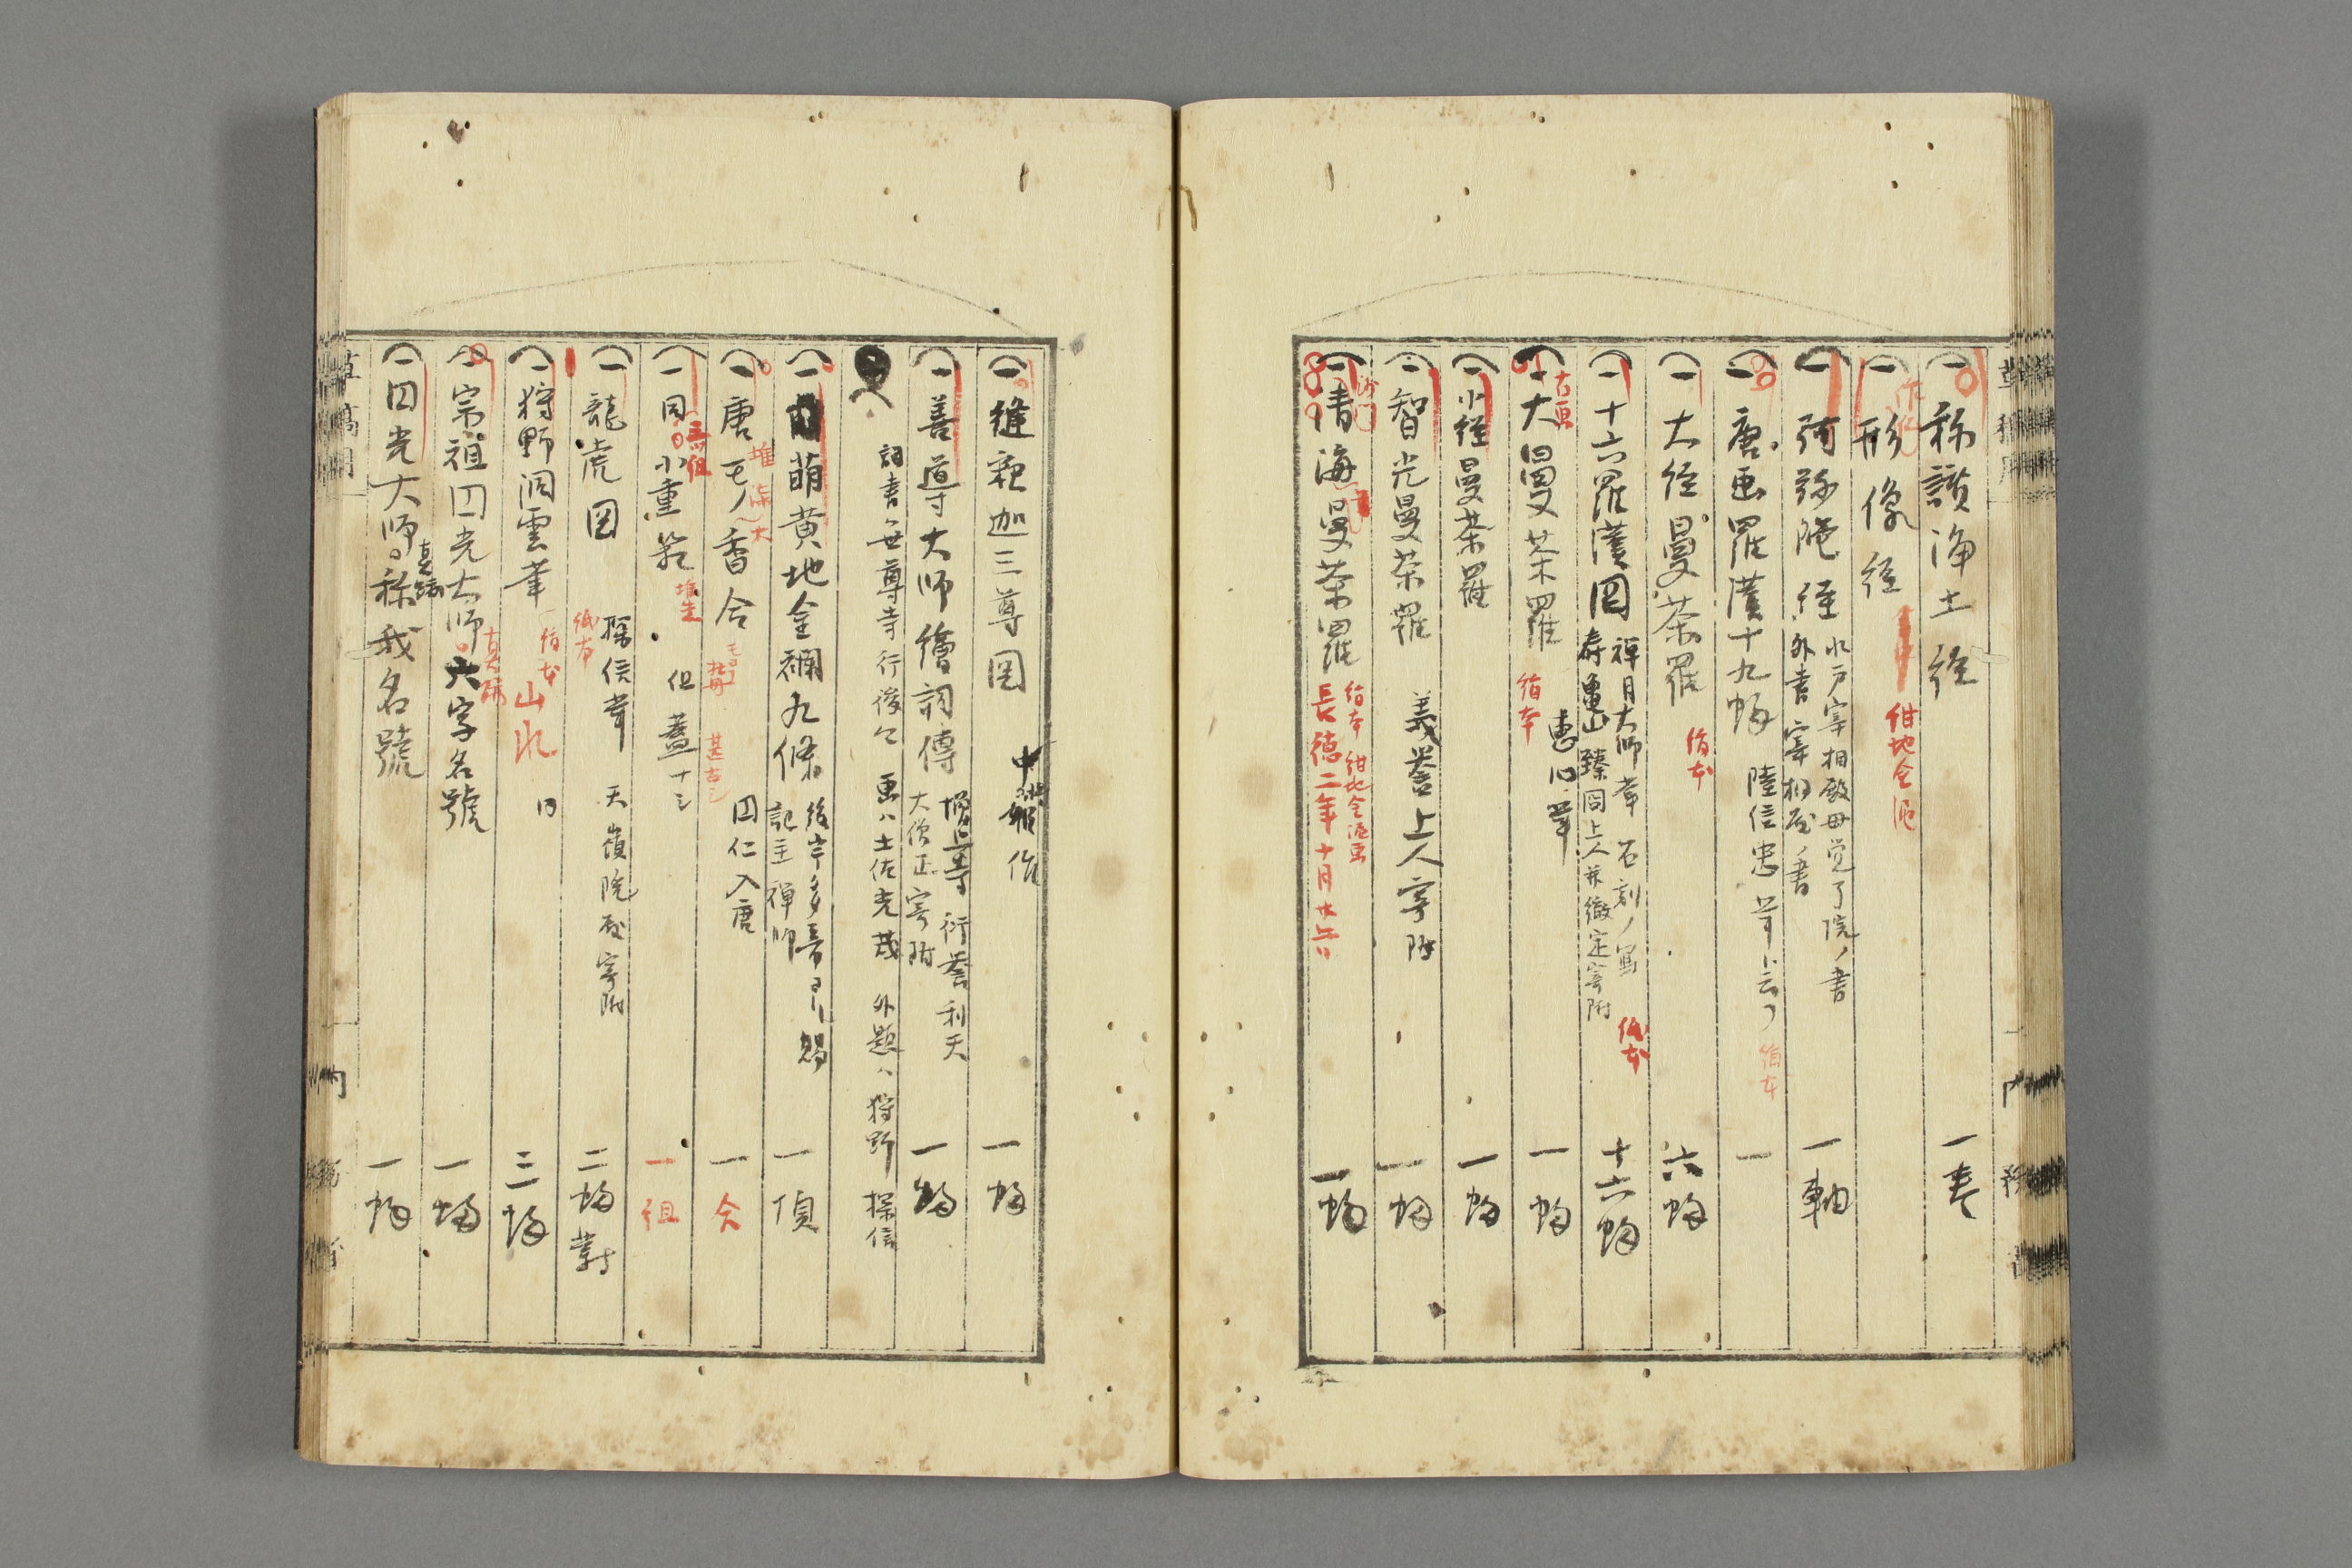 一 称讃浄土経 一巻
一 形像経 紺地金泥
一 阿弥陀経 水戸宰相殿母覚了院ノ書 一軸
外書宰相殿ノ書
一 唐画羅漢十九幅 陸信忠筆ト云フ 絹本 一
一 大経曼茶羅 絹本 六幅
一 十六羅漢図 禅月大師筆 石刻ノ写 紙本 十六幅
寿亀山臻同上人并徹定寄附
一 古画 大曼茶羅 絹本 恵心筆 一幅
一 小経曼茶羅 一幅
一 智光曼茶羅 義誉上人寄附 一幅
一 清海曼茶羅 絹本 紺地金泥画 一幅
長徳二年十月廿六日
一 縫釈迦三尊図 中将姫作 一幅
一 善導大師繪詞傳 増上寺 衍誉利天 一幅
大僧正寄附
詞書世尊寺行俊ニ 画ハ土佐光茂 外題ハ狩野探信
一 萌黄地金襴九條 後宇多帝ヨリ賜 一頂
記主禅師
一 唐モノ香合 堆朱 大 円仁入唐 一合
甚古シ
一 同 小重筥 堆朱 但蓋ナシ 一組
一 龍虎図 探信筆 天嶺院殿寄附 二幅對
紙本
一 狩野洞雲筆 絹本 山水 同 三幅
一 宗祖円光大師 六字名號 一幅
一 円光大師 真蹟 称我名號 一幅